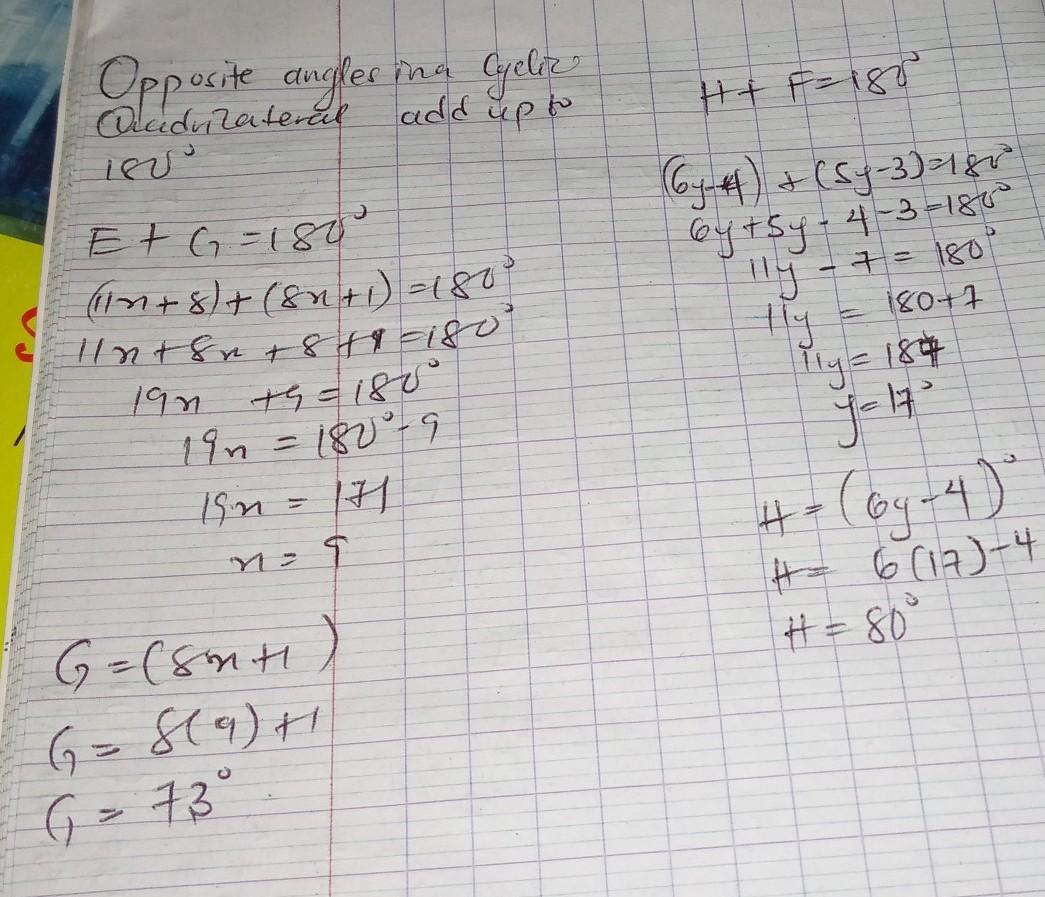 Opposite angles in a Cyclic
Quadrilateral add up to
180°
E + G = 180°
(11x + 8) + (8x + 1) = 180°
11x + 8x + 8 + 1 = 180°
19x + 9 = 180°
19x = 180° - 9
19x = 171
x = 9
G = (8x + 1)
G = 8(9) + 1
G = 73°
H + F = 180°
(6y - 4) + (5y - 3) = 180°
6y + 5y - 4 - 3 = 180°
11y - 7 = 180°
11y = 180 + 7
11y = 187
y = 17°
H = (6y - 4)°
H = 6(17) - 4
H = 80°